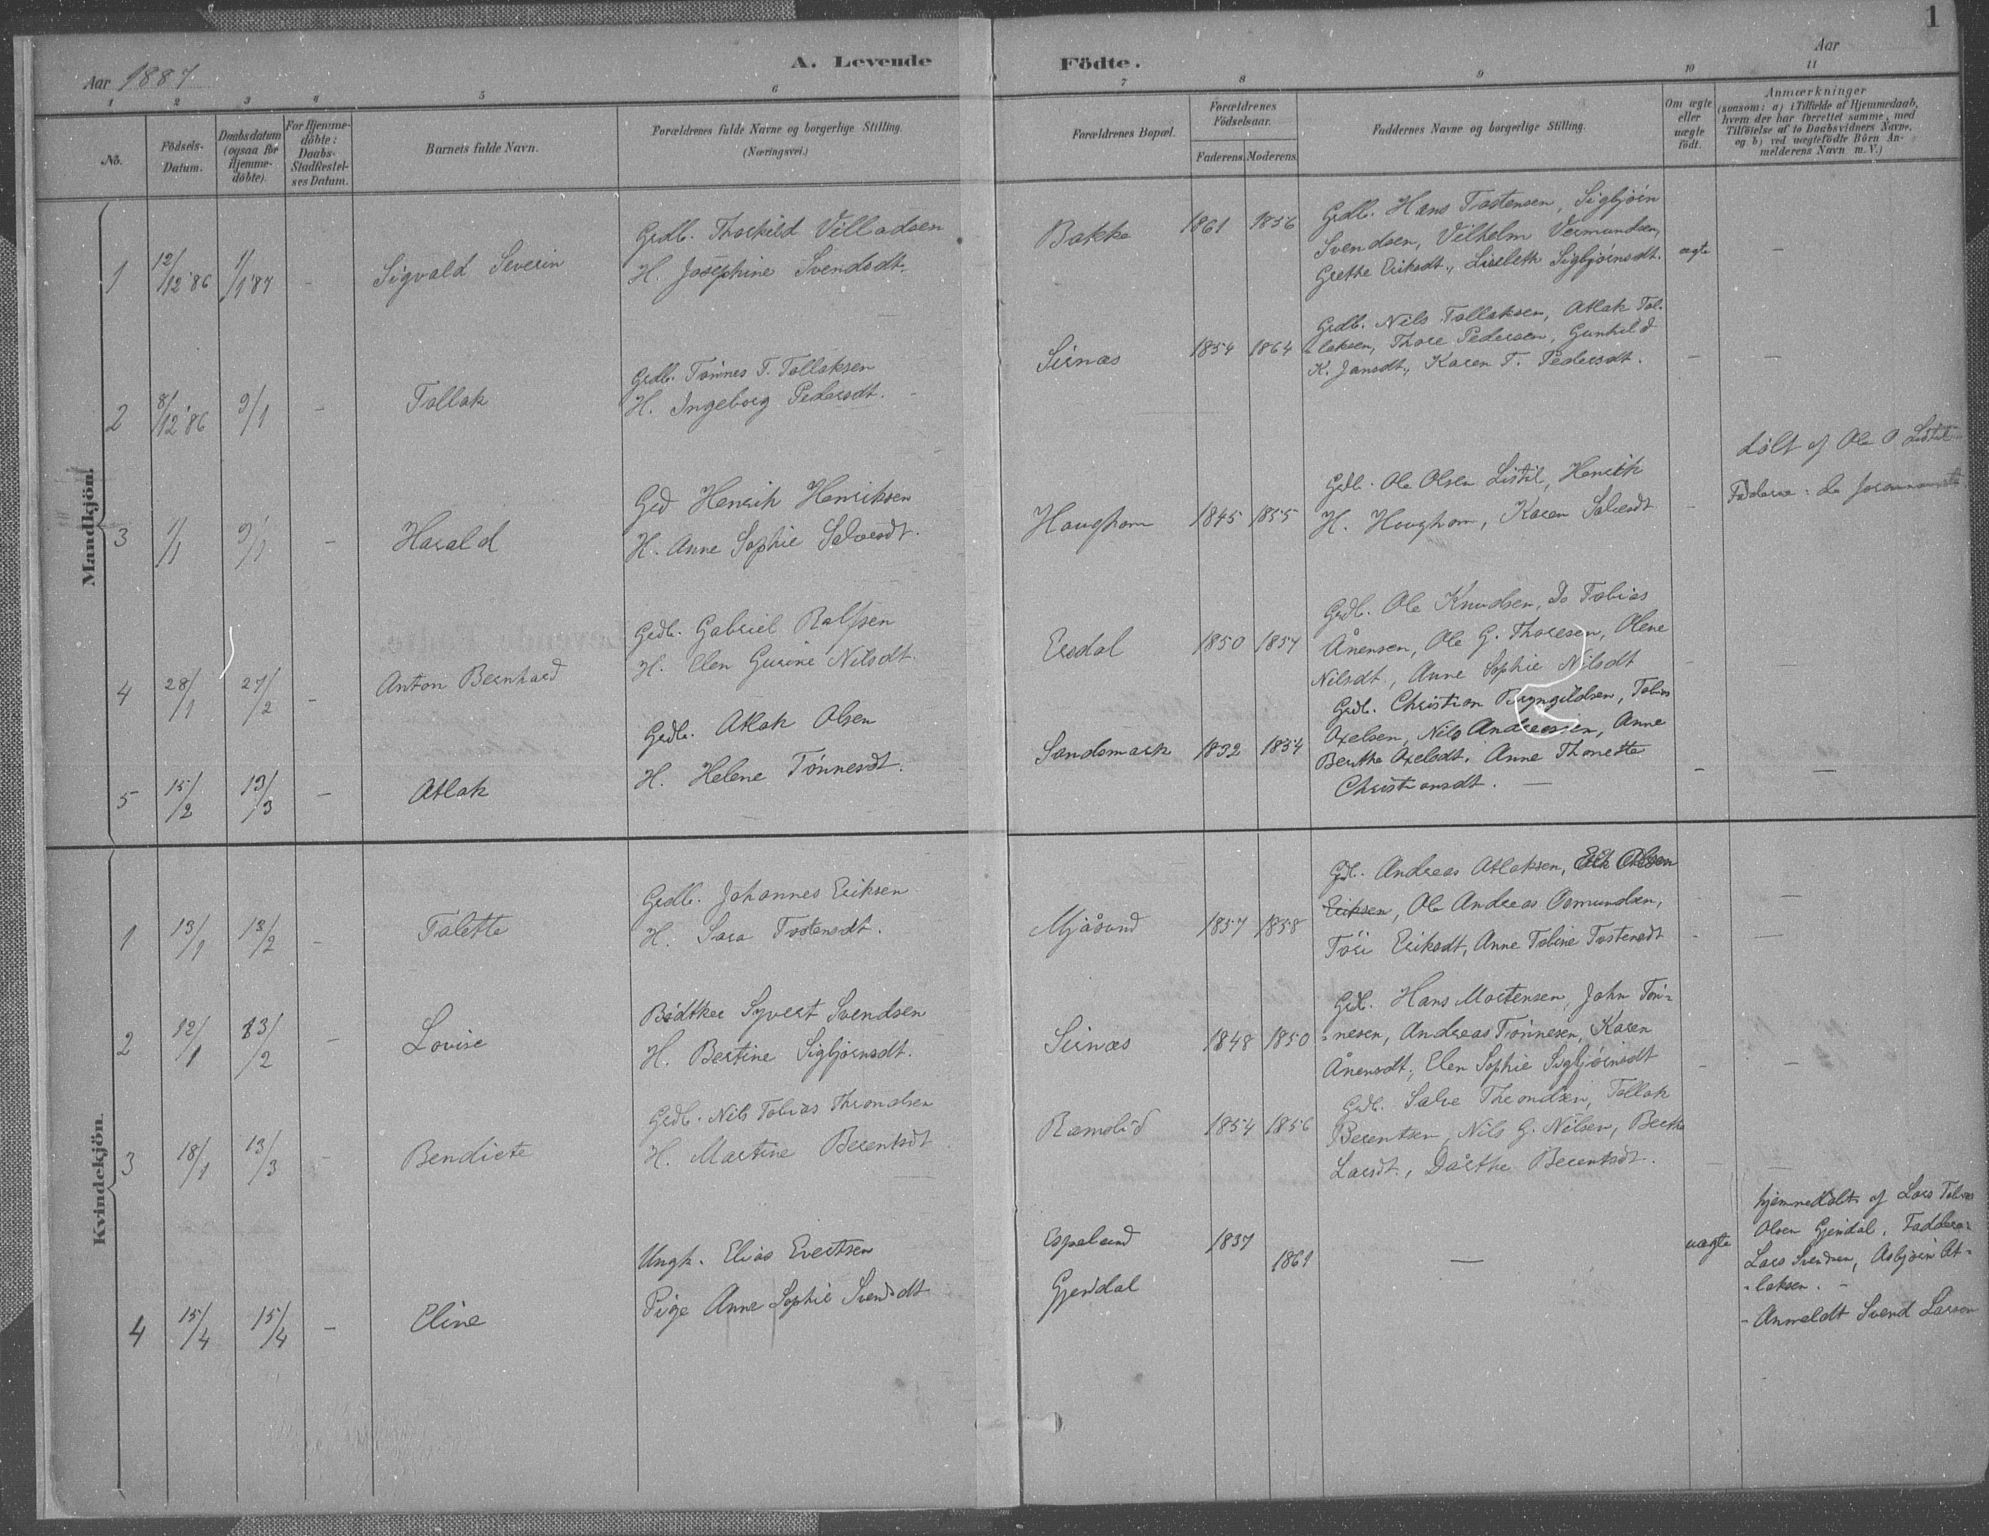 1
Aar 1887
A. Levende Födte.
Aar
1 2 3 4 5 6 7 8 9 10 11
No.
Födsels-
Datum.
Daabsdatum
(ogsaa for
Hjemme-
döbte).
For Hjemme-
döbte:
Daabs-
Stadfæstel-
ses Datum.
Barnets fulde Navn.
Forældrenes fulde Navne og borgerlige Stilling.
(Næringsvei.)
Forældrenes Bopæl.
Forældrenes
Födselsaar.
Faderens. Moderens.
Faddernes Navne og borgerlige Stilling.
Om ægte
eller
uægte
født.
Anmærkninger
(saasom: a) i Tilfælde af Hjemmedaab,
hvem der har forrettet samme, med
Tilföielse af to Daabsvidners Navne,
og b) ved uægtefödte Börn An-
melderens Navn m. V.)
Mandkjön.
1 12/12 86 1/1 87 - Sigvald Severin
Grdb. Thorkild Villadsen
H. Josephine Svendsdt.
Bakke 1861 1856
Grdb. Hans Tostensen, Sigbjørn
Svendsen, Vilhelm Vermundsen,
Grethe Eriksdt., Lisebeth Sigbjørnsdt.
ægte —
2 8/12 86 9/1 - Tollak
Grdb. Tønnes T. Tollaksen
H. Ingeborg Pedersdt.
Sirnæs 1854 1864
Grdb. Nils Tollaksen, Atlak Tol-
laksen, Thore Pedersen, Gunhild
K. Jansdt., Karen T. Pedersdt.
— —
3 1/1 9/1 - Harald
Grd Henrik Henriksen
H. Anne Sophie Salvesdt.
Houghom 1845 1855
Grdb. Ole Olsen Listøl, Henrik
H. Houghom, Karen Salvesdt
-
døbt af Ole O. Listøl
Faddere: de
4 28/1 27/2 - Anton Bernhard
Grdb. Gabriel Ralfsen
H. Elen Gurine Nilsdt.
Ersdal 1850 1857
Grdb. Ole Knudsen, Do Tobias
Ånensen, Ole G. Thoresen, Olene
Nilsdt., Anne Sophie Nilsdt
- —
5 15/2 13/3 - Atlak
Grdb. Atlak Olsen
H. Helene Tønnesdt.
Sandsmark 1832 1854
Grdb. Christian Bryngildsen, Tobias
Axelsen, Nils Andreassen, Anne
Berthe Axelsdt. Anne Thonette
Christiansdt. —
- —
Kvindekjön.
1 13/1 13/2 - Talette
Grdb. Johannes Eriksen
H. Sara Tostensdt.
Mjåsund 1857 1858
Grdb. Andreas Atlaksen, Erik Olsen
Eriksen, Ole Andreas Osmundsen,
Tøri Eriksdt, Anne Tobine Tostensdt
- —
2 12/1 13/2 - Lovise
Bødtker Syvert Svendsen
H. Bertine Sigbjørnsdt.
Sirnæs 1848 1850
Grdb. Hans Mortensen, John Tøn-
nesen, Andreas Tønnesen, Karen
Ånensdt., Elen Sophie Sigbjørnsdt
- —
3 18/1 13/3 - Bendicte
Grdb. Nils Tobias Throndsen
H. Martine Berentsdt
Ramslid 1854 1856
Grdb. Salve Throndsen, Tollak
Berentsen, Nils G. Nilsen, Berthe
Larsdt., Dorthe Berentsdt.
— —
4 15/4 15/4 - Eline
Ungk. Elias Evertsen
Pige Anne Sophie Svendsdt
Espeland 1837
Gjendal 1861
—
uægte
hjemmedøbt af Lars Tobias
Olsen Gjendal. Faddere:
Lars Svendsen, Asbjørn At-
laksen. -
- Anmeldt Svend Larsen